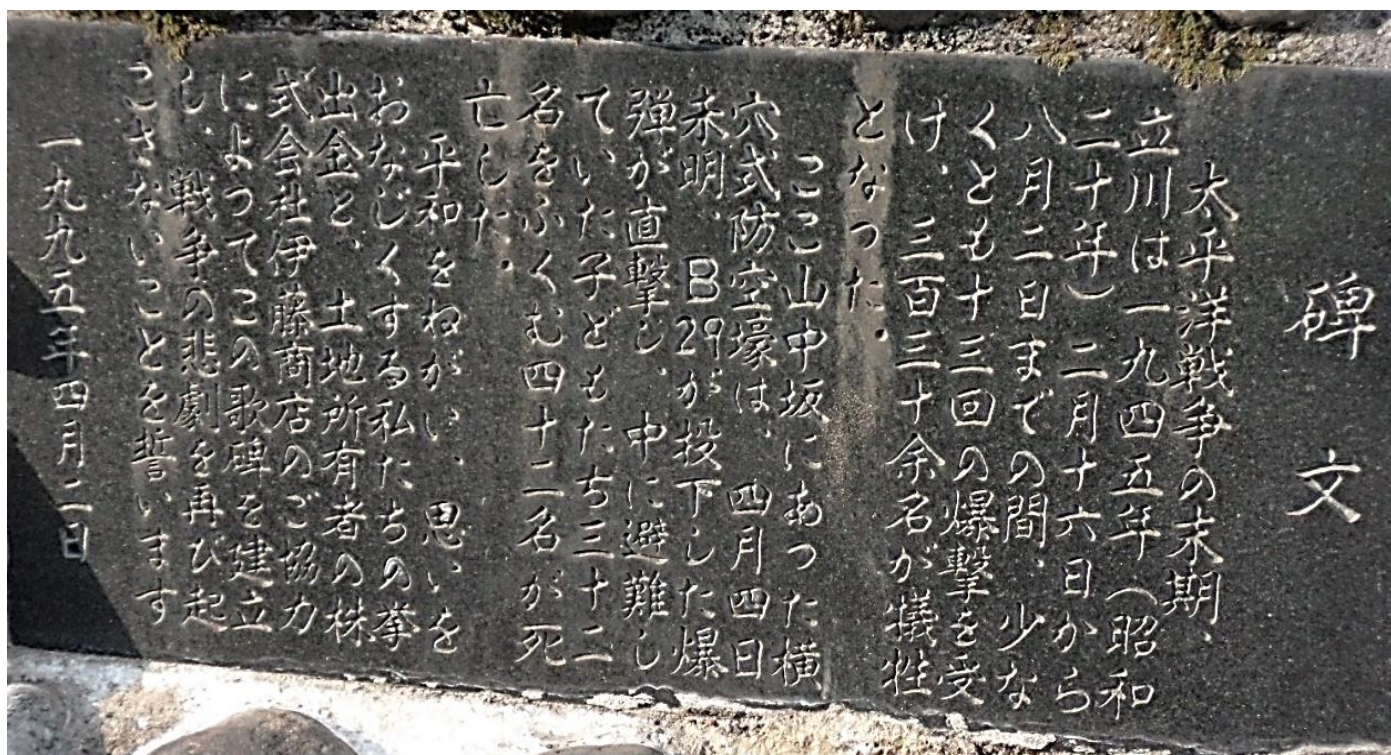 碑文
太平洋戦争の末期、
立川は一九四五年（昭和
二十年）二月十六日から
八月二日までの間、少な
くとも十三回の爆撃を受
け、三百三十余名が犠牲
となった。
ここ山中坂にあった横
穴式防空壕は、四月四日
未明、B29が投下した爆
弾が直撃し、中に避難し
ていた子どもたち三十二
名をふくむ四十二名が死
亡した。
平和をねがい、思いを
おなじくする私たちの拳
出金と、土地所有者の株
式会社伊藤商店のご協力
によってこの歌碑を建立
し、戦争の悲劇を再び起
こさないことを誓います
一九九五年四月二日